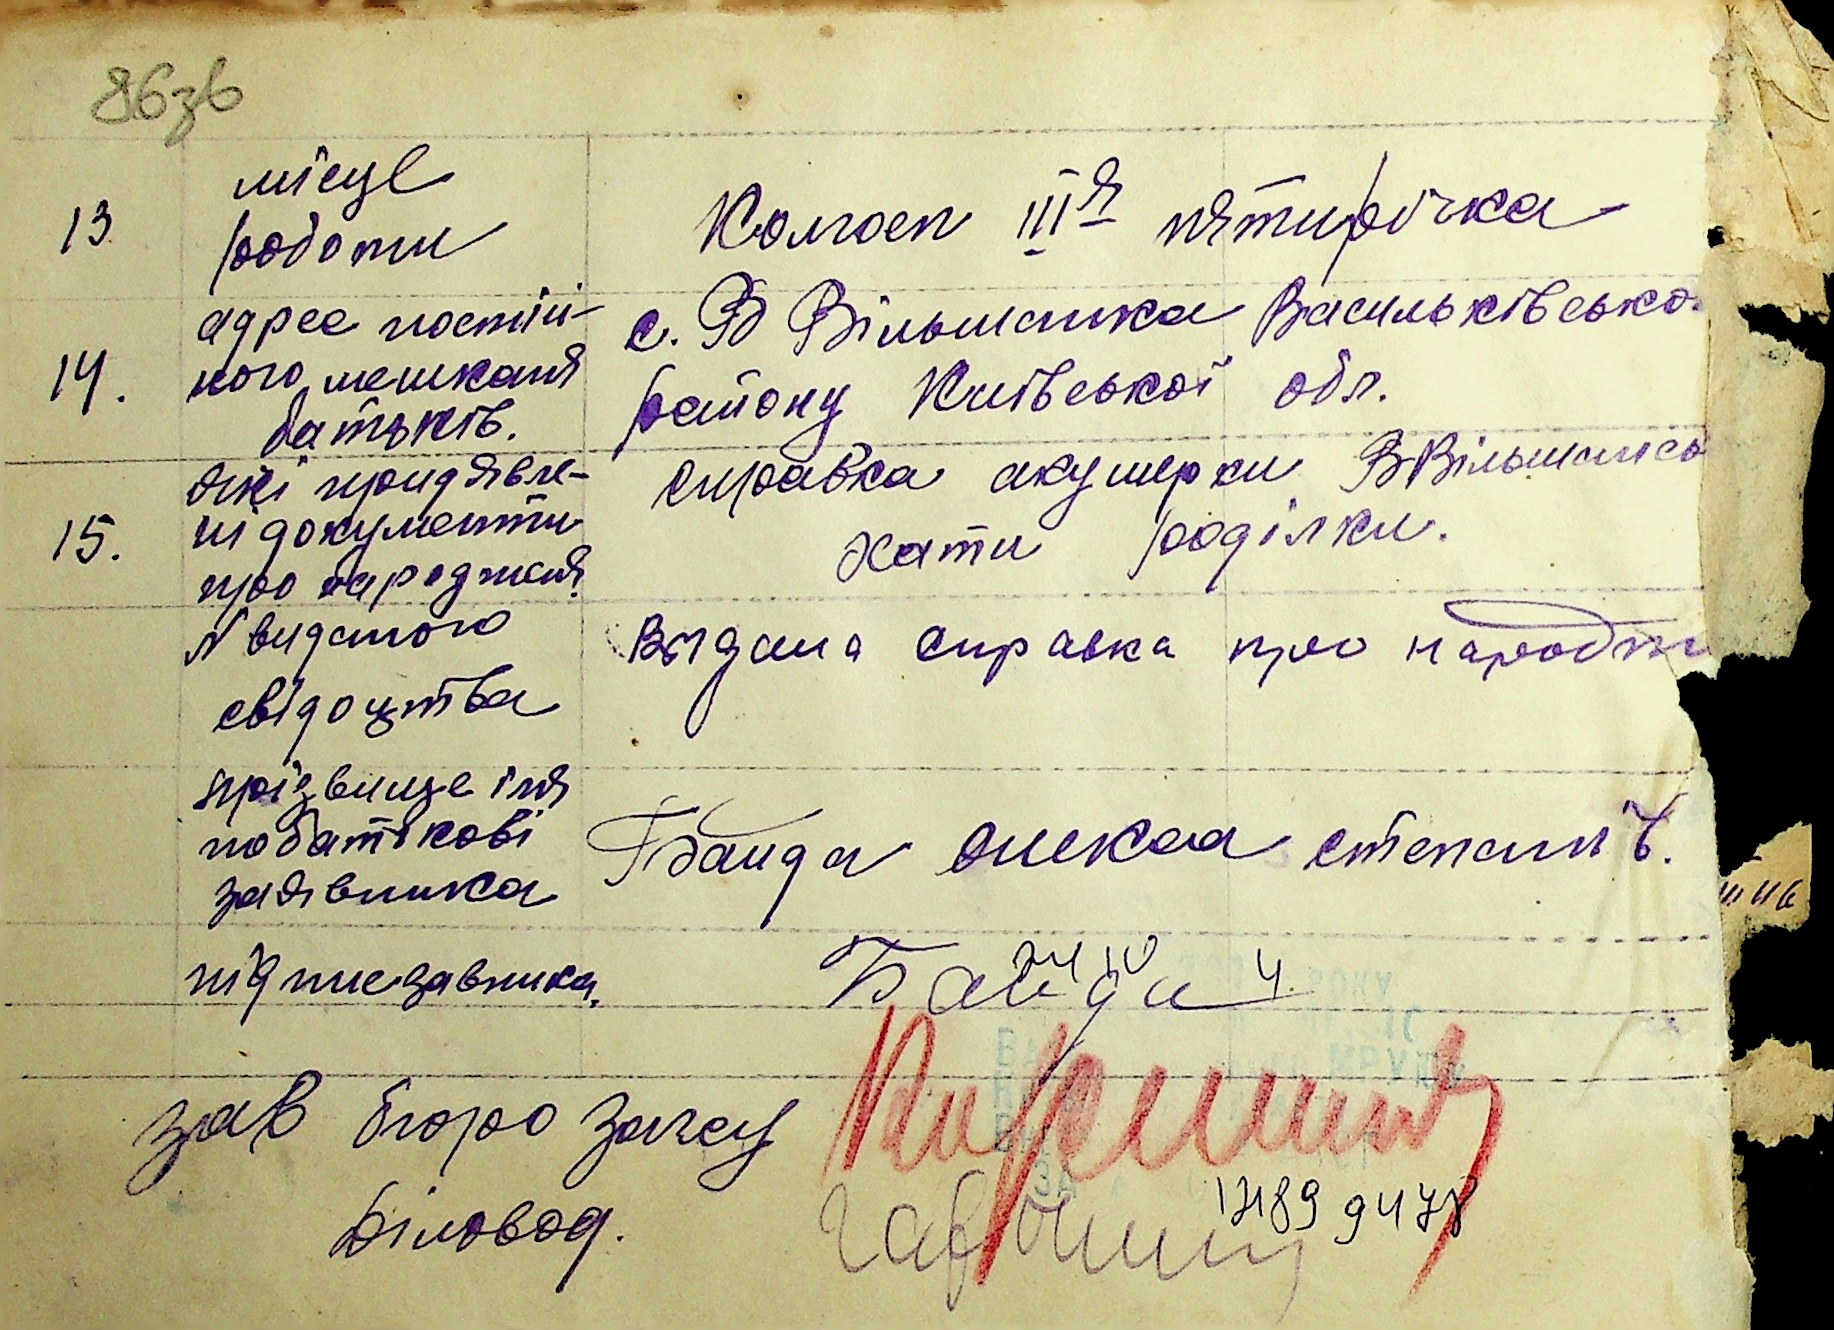 86зв
13 місце
роботи
Колгосп ІІІя пятирічка
14. адрес постій-
ного мешканя
батьків.
с. В Вільшанка Васильківсько
району Київської обл.
15. які придявле-
ні документи
про народженя.
справка акушерки ВВільшансь
хати роділки.
N виданого
свідоцтва
Видана справка про народж
прізвище імя
побатькові
заявника
Байда Олекса степанів.
підпис завника.
Байда
зав бюро загсу
Діловод.